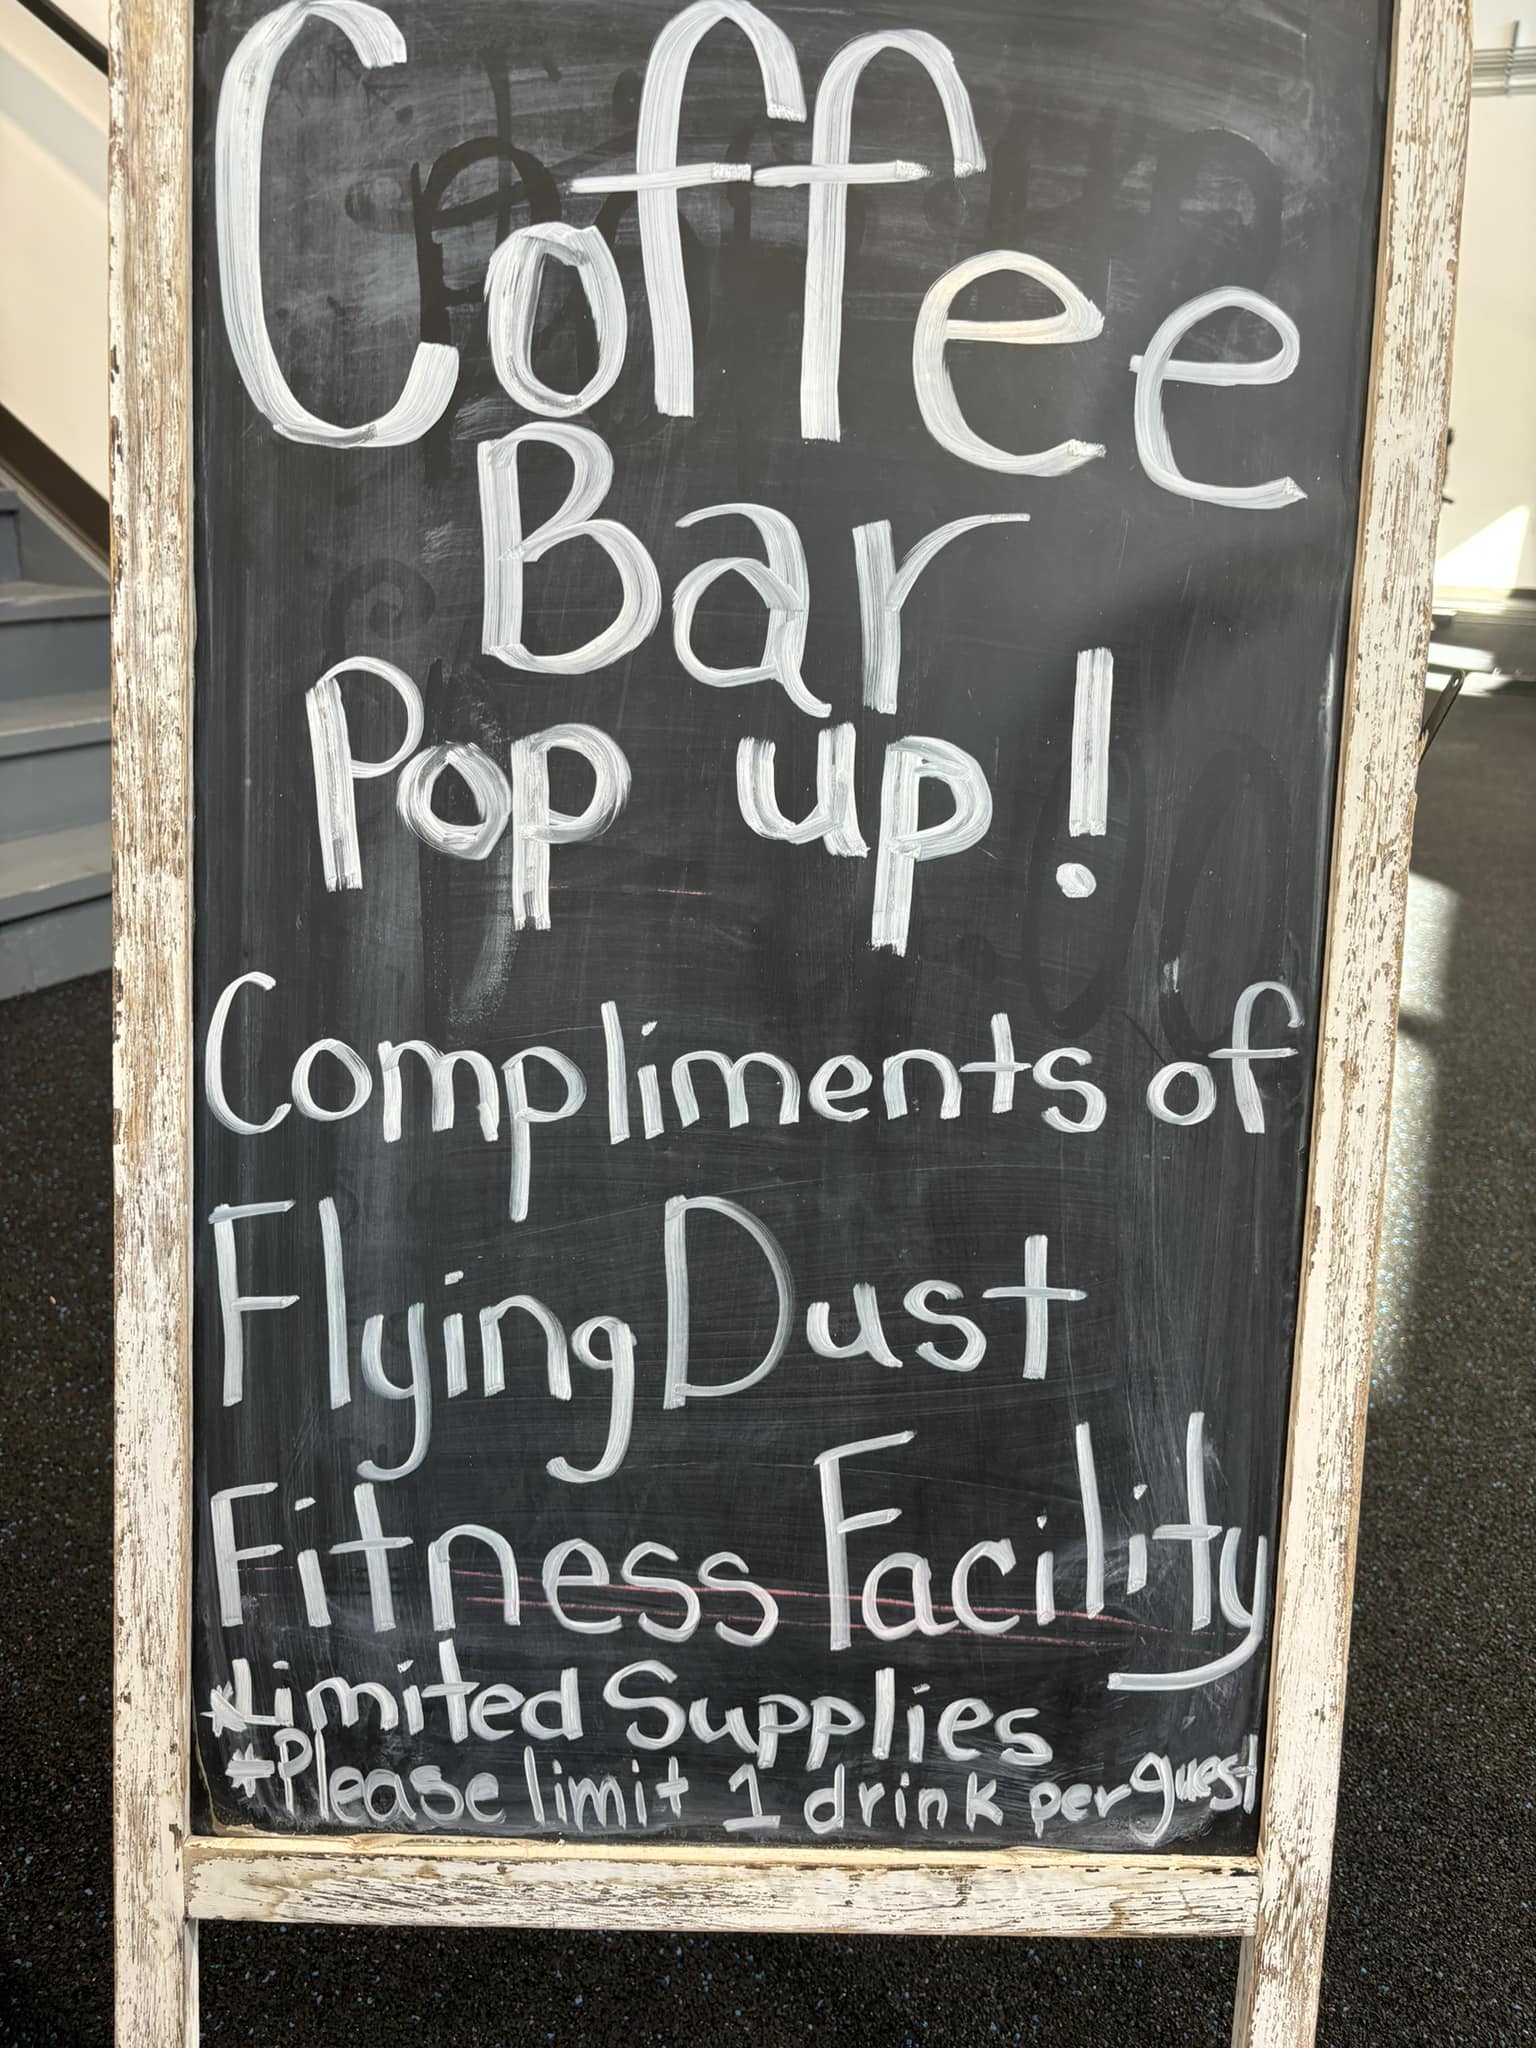 Coffee
Bar
Pop up!
Compliments of
Flying Dust
Fitness Facility
*Limited Supplies
*Please limit 1 drink per guest